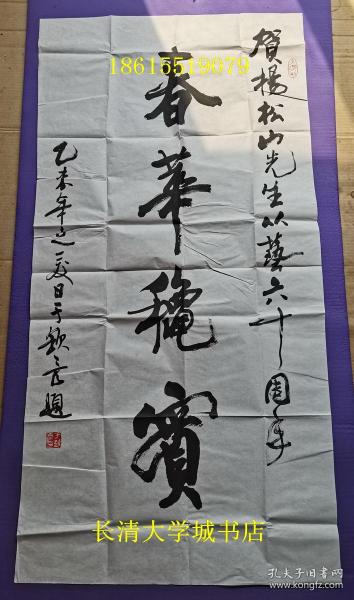 18615519079
贺杨松山先生从艺六十周年
春华穐实
乙未年之夏日于钦彦题
长清大学城书店
孔夫子旧书网
kongfz.com